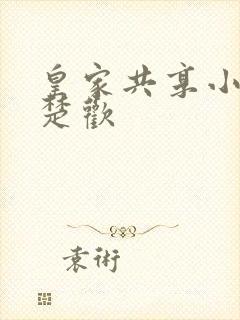 皇家共享小
楚歡
袁術